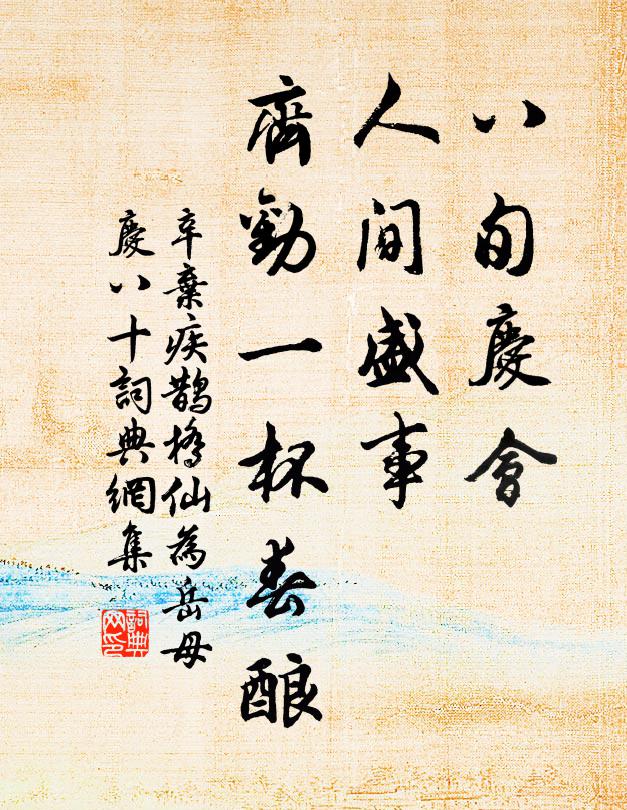 八旬慶會
人間盛事
齊勸一杯春酿
辛棄疾鵲橋仙為岳母
慶八十詞典網集
詞典
网印